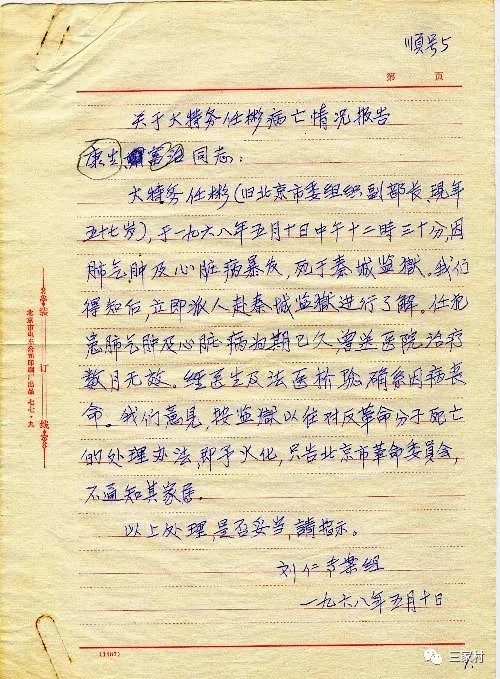 順号5
第 页
关于大特务任彬病亡情况报告
康生 富治同志：
大特务任彬(旧北京市委组织副部长，现年
五十七岁)，于一九六八年五月十日中午十二時三十分，因
肺气肿及心脏病暴发，死于秦城监獄。我们
得知后，立即派人赴秦城监獄进行了解。任犯
患肺气肿及心脏病为期已久，曾送医院治疗
数月无效。经医生及法医检验，确系因病丧
命。我们意见，按监獄以往对反革命分子死亡
的处理办法，即予火化，只告北京市革命委员会，
不通知其家居。
以上处理，是否妥当，請指示。
刘仁专案组
一九六八年五月十日
装订线
(1107)
三家村
1.